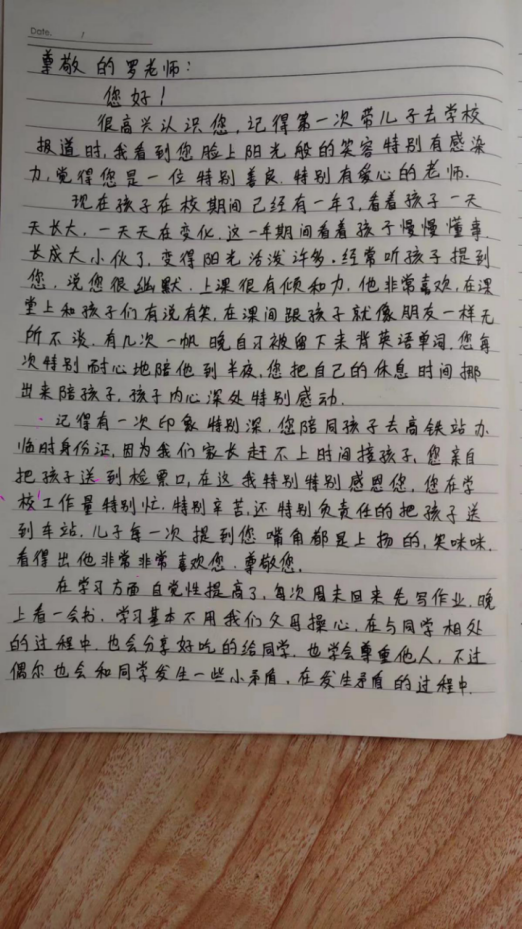 Date. /
尊敬的罗老师:
您好!
很高兴认识您,记得第一次带儿子去学校
报道时,我看到您脸上阳光般的笑容特别有感染
力,觉得您是一位特别善良.特别有爱心的老师.
现在孩子在校期间已经有一年了,看着孩子一天
天长大,一天天在变化.这一年期间看着孩子慢慢懂事.
长成大小伙了,变得阳光活泼许多.经常听孩子提到
您.说您很幽默.上课很有倾和力,他非常喜欢,在课
堂上和孩子们有说有笑,在课间跟孩子就像朋友一样无
所不谈.有几次一帆晚自习被留下来背英语单词.您每
次特别耐心地陪他到半夜.您把自己的休息时间挪
出来陪孩子,孩子内心深处特别感动.
记得有一次印象特别深,您陪同孩子去高铁站办
临时身份证,因为我们家长赶不上时间接孩子,您亲自
把孩子送到检票口,在这我特别特别感恩您,您在学
校工作量特别忙.特别辛苦,还特别负责任的把孩子送
到车站.儿子每一次提到您嘴角都是上扬的,笑咪咪.
看得出他非常非常喜欢您.尊敬您.
在学习方面自觉性提高了,每次周末回来先写作业.晚
上看一会书.学习基本不用我们父母操心.在与同学相处
的过程中.也会分享好吃的给同学.也学会尊重他人,不过
偶尔也会和同学发生一些小矛盾.在发生矛盾的过程中.